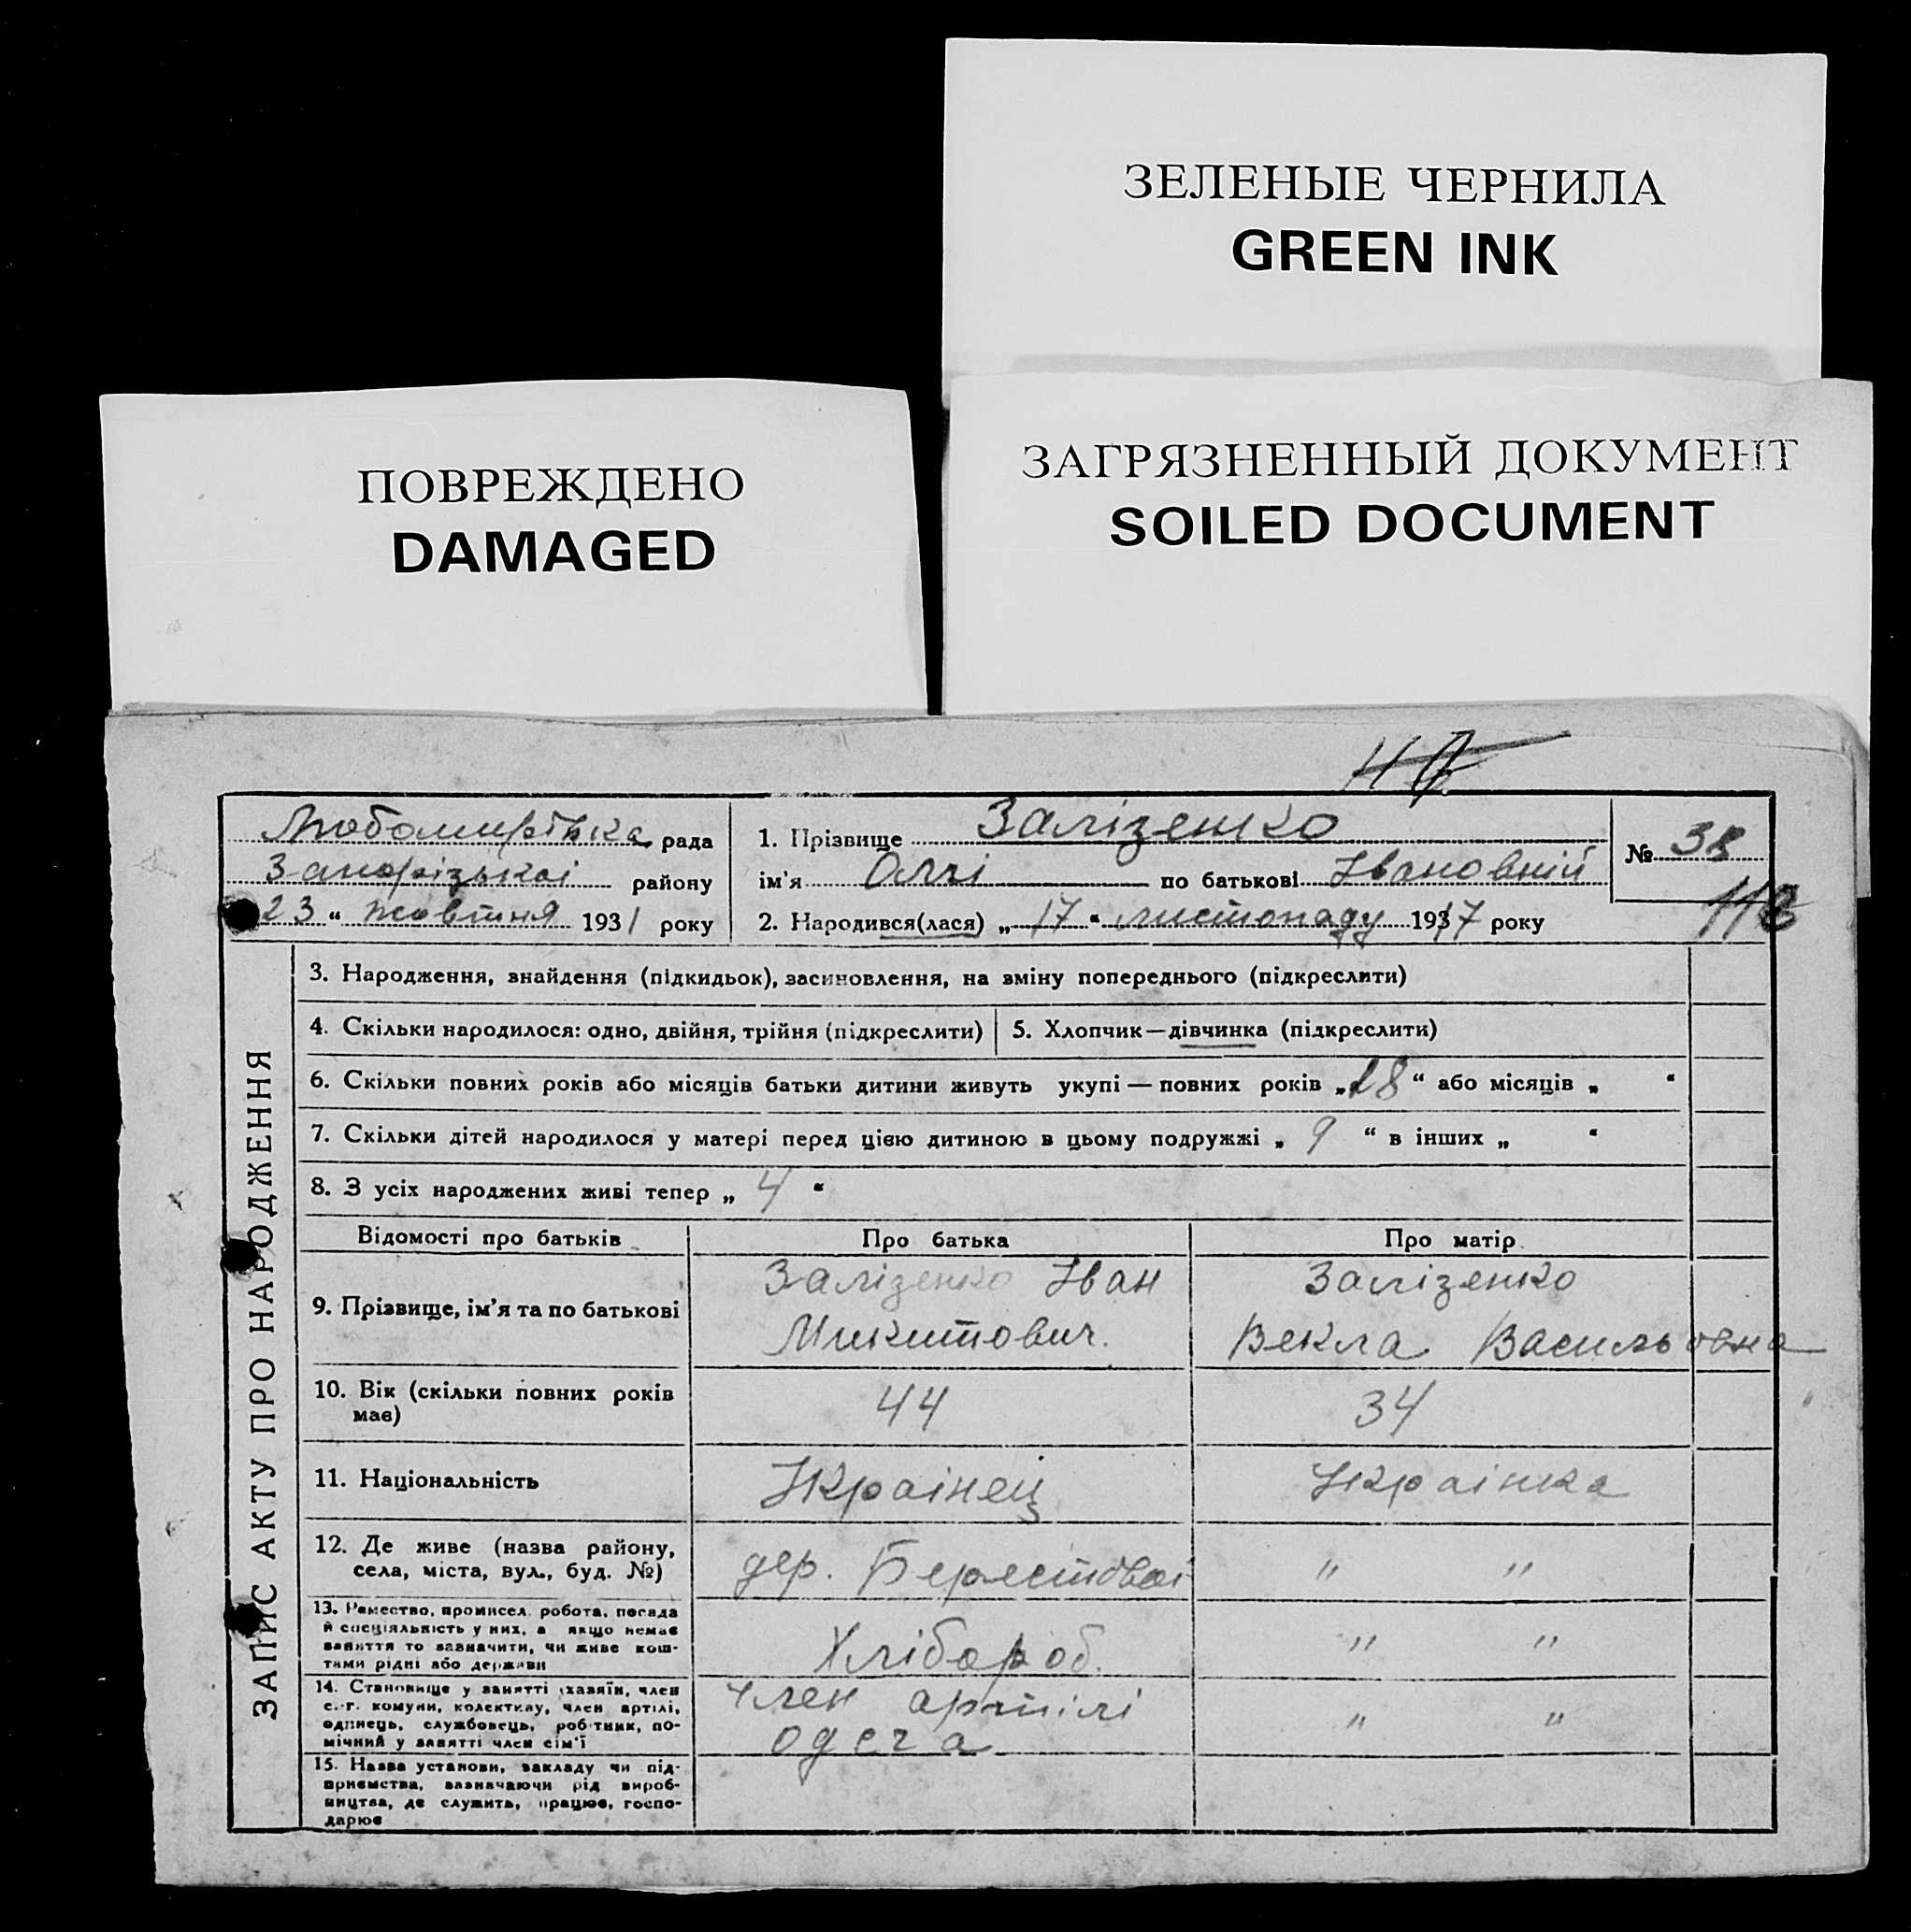 ЗЕЛЕНЫЕ ЧЕРНИЛА
GREEN INK
ПОВРЕЖДЕНО
DAMAGED
ЗАГРЯЗНЕННЫЙ ДОКУМЕНТ
SOILED DOCUMENT
Любомирівка рада
Запорізької району
23 " жовтня 1931 року
1. Прізвище Залізенко
ім'я Оллі по батькові Івановній
2. Народився(лася) „ 17 " листопаду 1917 року
№ 38
118
ЗАПИС АКТУ ПРО НАРОДЖЕННЯ
3. Народження, знайдення (підкидьок), засиновлення, на зміну попереднього (підкреслити)
4. Скільки народилося: одно, двійня, трійня (підкреслити) 5. Хлопчик—дівчинка (підкреслити)
6. Скільки повних років або місяців батьки дитини живуть укупі — повних років „18" або місяців „ "
7. Скільки дітей народилося у матері перед цією дитиною в цьому подружжі „ 9 " в інших „ "
8. З усіх народжених живі тепер „ 4 "
Відомості про батьків Про батька Про матір
9. Прізвище, ім'я та по батькові
Залізенко Іван
Микитович.
Залізенко
Векла Васильовна
10. Вік (скільки повних років
має)
44
34
11. Національність
Украінец
Украінка
12. Де живе (назва району,
села, міста, вул., буд. №)
дер. Берестовоі
" "
13. Ремество, промисел, робота, посада
й спеціяльність у них, а якщо немає
заняття то зазначити, чи живе кош-
тами рідні або держави
Хлібороб.
" "
14. Становище у занятті (хазяїн, член
с.-г. комуни, колективу, член артілі,
одинець, службовець, робітник, по-
мічний у занятті член сім'ї
член артілі
" "
15. Назва установи, закладу чи під-
приємства, зазначаючи рід вироб-
ництва, де служить, працює, госпо-
дарює